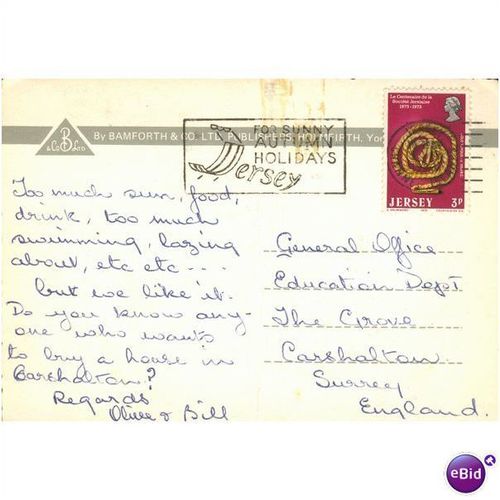 Le Centenaire de la
Société Jersiaise
1873-1973
JERSEY 3P
FOR SUNNY
AUTUMN
HOLIDAYS
Jersey
B
& Co LTD
By BAMFORTH & CO. LTD. PUBLISHERS, HOLMFIRTH,
Too much sun, food,
drink, too much
swimming, lazing
about, etc etc ....
but we like it.
Do you know any-
one who wants
to buy a house in
Carshalton?
Regards
Olive & Bill
General Office
Education Dept
The Grove
Carshalton
Surrey
England.
eBid